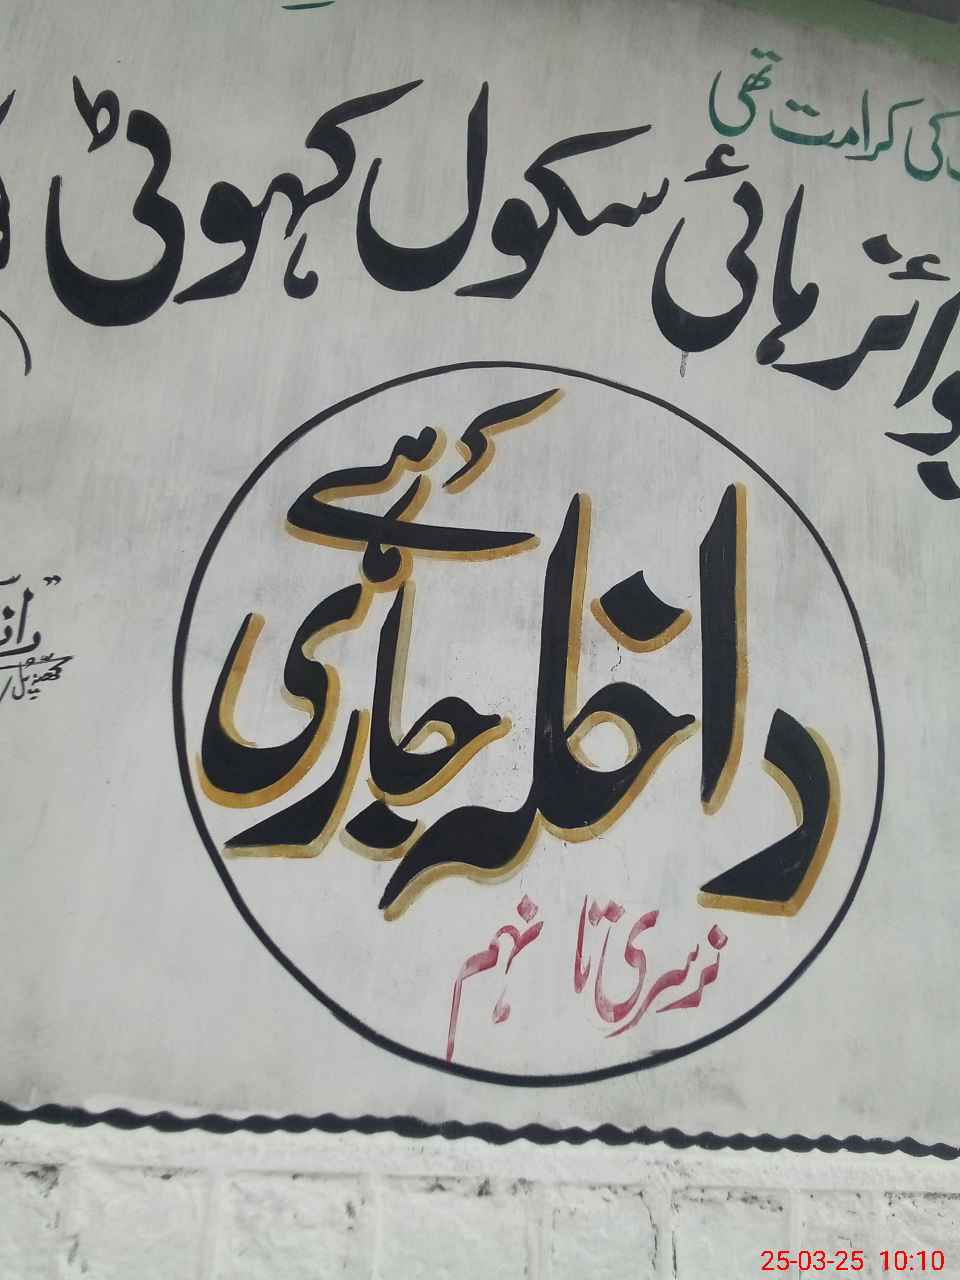 کی کرامت تھی
بوائز ہائی سکول کہوٹی
داخلہ جاری ہے
نرسری تا نہم
25-03-25 10:10